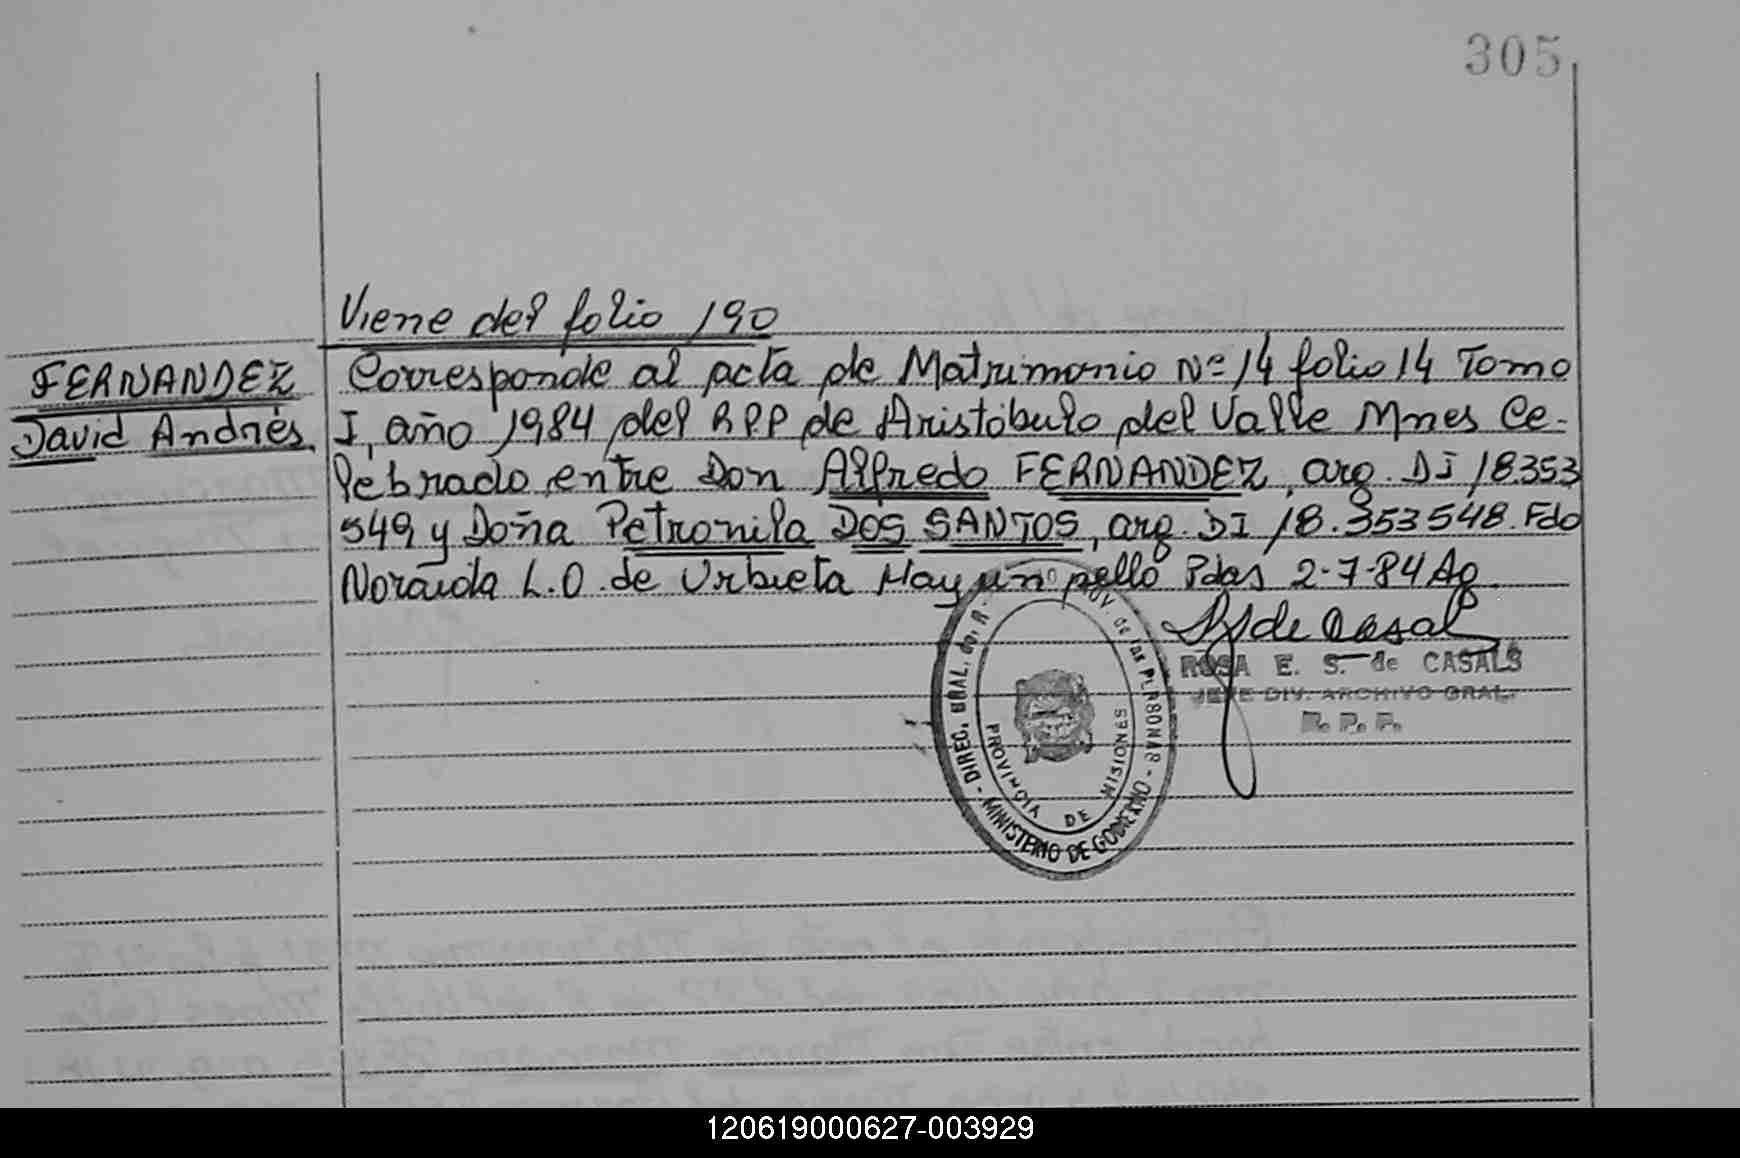 305
Viene del folio 190
FERNANDEZ
David Andrés.
Corresponde al acta de Matrimonio Nº 14 folio 14 Tomo
I, año 1984 del RPP de Aristóbulo del Valle Mnes Ce-
lebrado entre Don Alfredo FERNANDEZ, arg. DI 18.353
549 y Doña Petronila DOS SANTOS, arg. DI 18.353548. Fdo
Noraida L.O. de Urbieta Hay un sello Pdas 2-7-84 Ag.
ROSA E. S. de CASALS
JEFE DIV. ARCHIVO GRAL.
R. P. P.
DIREC. GRAL. de las PERSONAS - MINISTERIO DE GOBIERNO
PROVINCIA DE MISIONES
120619000627-003929